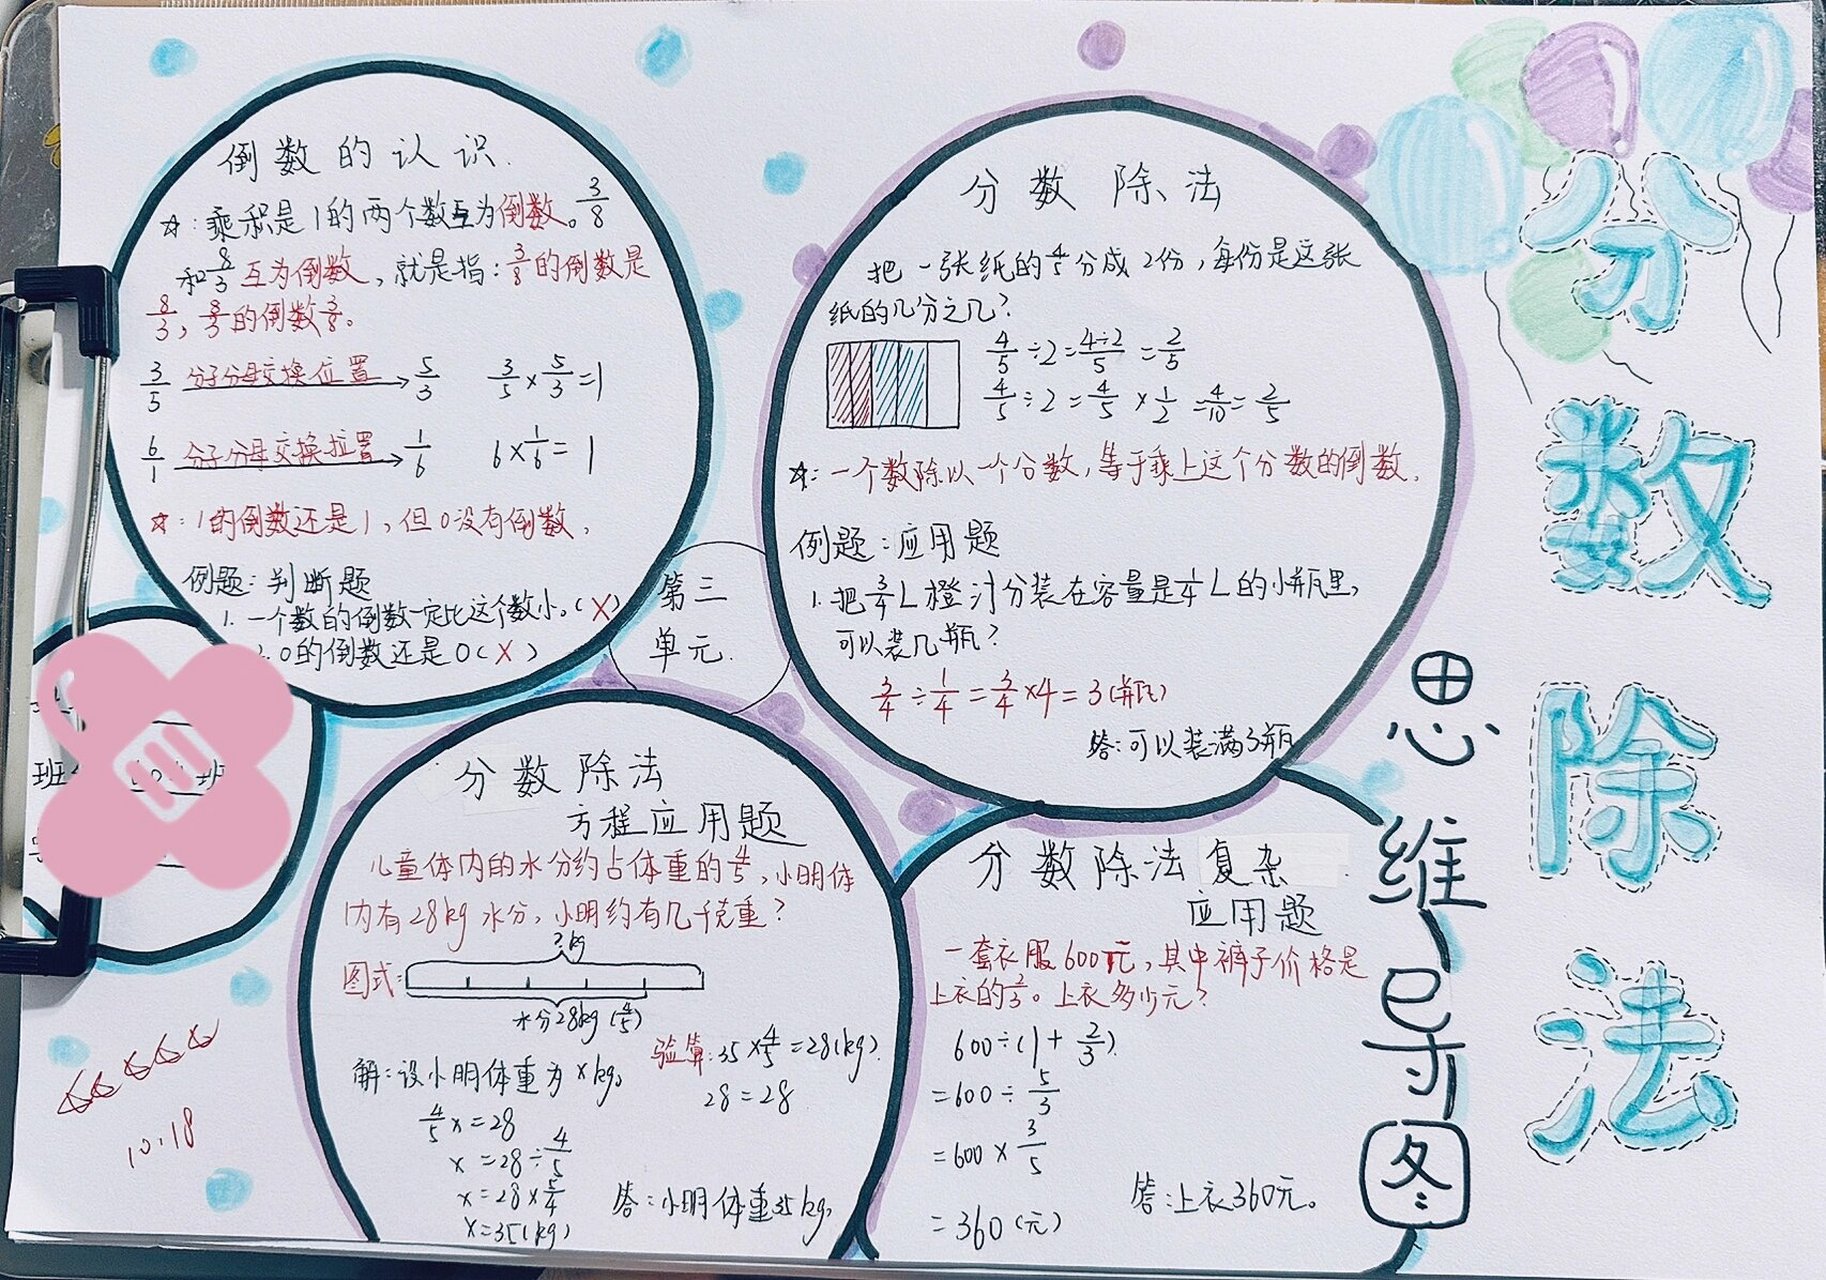 分数除法
思维导图
第三
单元.
倒数的认识.
☆:乘积是1的两个数互为倒数。3/8
和8/3互为倒数,就是指:3/8的倒数是
8/3,8/3的倒数3/8。
3/5 分子分母交换位置→ 5/3 3/5×5/3=1
6/1 分子分母交换位置→ 1/6 6×1/6=1
☆:1的倒数还是1,但0没有倒数.
例题:判断题
1. 一个数的倒数一定比这个数小。(X)
2.0的倒数还是0(X)
分数除法
把一张纸的4/5分成2份,每份是这张
纸的几分之几?
4/5÷2=4÷2/5=2/5
4/5÷2=4/5×1/2=4/10=2/5
☆:一个数除以一个分数,等于乘上这个分数的倒数.
例题:应用题
1.把3/4L橙汁分装在容量是1/4L的小瓶里,
可以装几瓶?
3/4÷1/4=3/4×4=3(瓶)
答:可以装满3瓶
分数除法
方程应用题
儿童体内的水分约占体重的4/5,小明体
内有28kg水分,小明约有几千克重?
?kg
图式:
水分28kg(4/5)
解:设小明体重为xkg。
4/5x=28
x=28÷4/5
x=28×5/4
x=35(kg)
验算:35×4/5=28(kg).
28=28
答:小明体重35kg。
分数除法复杂
应用题
一套衣服600元,其中裤子价格是
上衣的2/3。上衣多少元?
600÷(1+2/3)
=600÷5/3
=600×3/5
=360(元)
答:上衣360元。
班
班
10.18